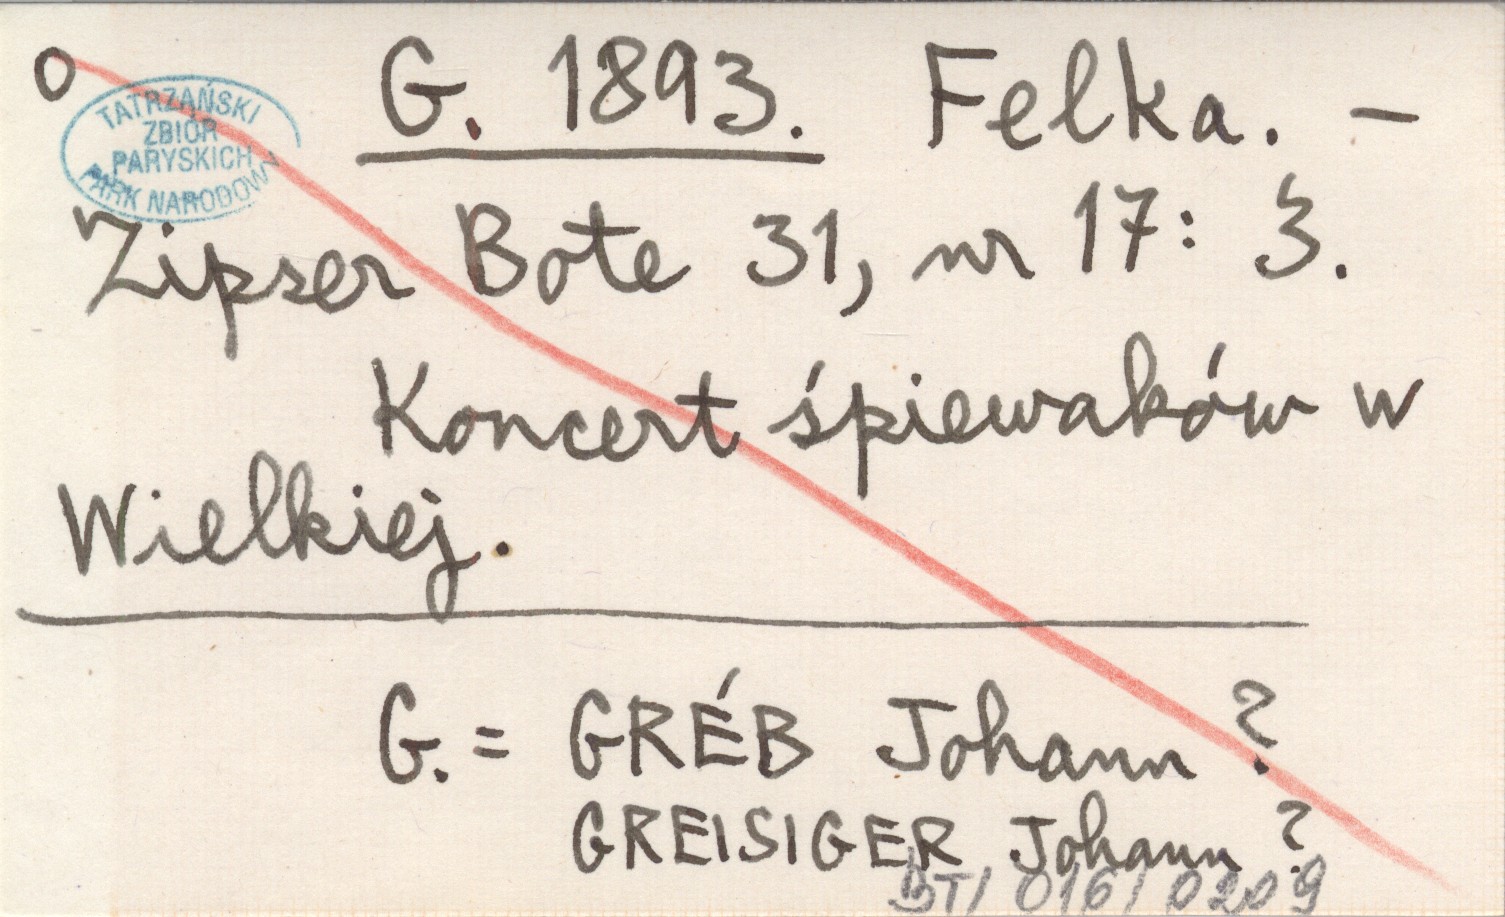 o
G. 1893. Felka. –
TATRZAŃSKI
ZBIÓR
PARYSKICH
PARK NARODOWY
Zipser Bote 31, nr 17: 3.
Koncert śpiewaków w
Wielkiej.
G. = GRÉB Johann ?
GREISIGER Johann ?
BT/ 016/ 0209